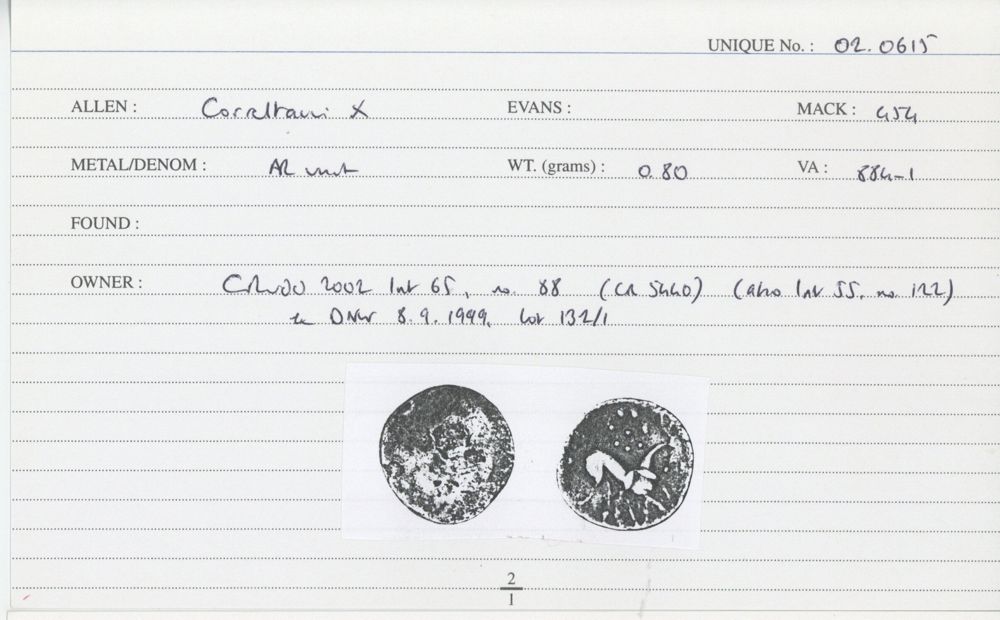 UNIQUE No. : 02.0615
ALLEN : Correltauvi X EVANS : MACK : 454
METAL/DENOM : AR unit WT. (grams) : 0.80 VA : 884-1
FOUND :
OWNER : 2002 Int 65, no. 88 (CR 5440) (also Int 55, no. 122)
ex DNW 8.9.1999, lot 132/1
2
1